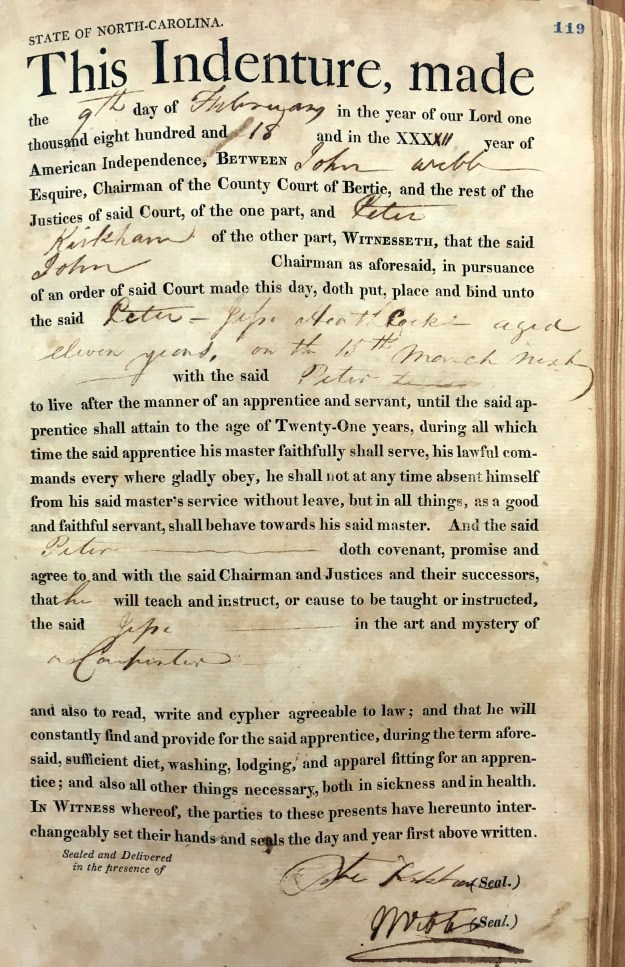 119
STATE OF NORTH-CAROLINA.
This Indenture, made
the 9th day of February in the year of our Lord one
thousand eight hundred and 18 and in the XXXXII year of
American Independence, BETWEEN John Webb
Esquire, Chairman of the County Court of Bertie, and the rest of the
Justices of said Court, of the one part, and Peter
Kirkham of the other part, WITNESSETH, that the said
John Chairman as aforesaid, in pursuance
of an order of said Court made this day, doth put, place and bind unto
the said Peter – Jesse Heathcock aged
eleven years, on the 15th March next
with the said Peter
to live after the manner of an apprentice and servant, until the said ap-
prentice shall attain to the age of Twenty-One years, during all which
time the said apprentice his master faithfully shall serve, his lawful com-
mands every where gladly obey, he shall not at any time absent himself
from his said master's service without leave, but in all things, as a good
and faithful servant, shall behave towards his said master. And the said
Peter doth covenant, promise and
agree to and with the said Chairman and Justices and their successors,
that he will teach and instruct, or cause to be taught or instructed,
the said Jesse in the art and mystery of
a Carpenter
and also to read, write and cypher agreeable to law; and that he will
constantly find and provide for the said apprentice, during the term afore-
said, sufficient diet, washing, lodging, and apparel fitting for an appren-
tice; and also all other things necessary, both in sickness and in health.
IN WITNESS whereof, the parties to these presents have hereunto inter-
changeably set their hands and seals the day and year first above written.
Sealed and Delivered
in the presence of
Kirkham (Seal.)
Webb (Seal.)